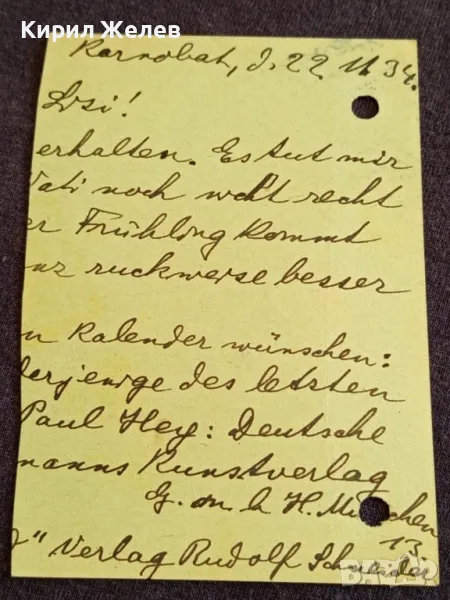 Кирил Желев
Karnobat, d. 22 II 34.
Lisi!
erhalten. Es tut mir
Vati noch nicht recht
er Frühling kommt
nz ruckweise besser
n Kalender wünschen:
derjenige des letzten
Paul Hey: Deutsche
manns Kunstverlag
G. m. b. H. München
13.
" Verlag Rudolf Schneider